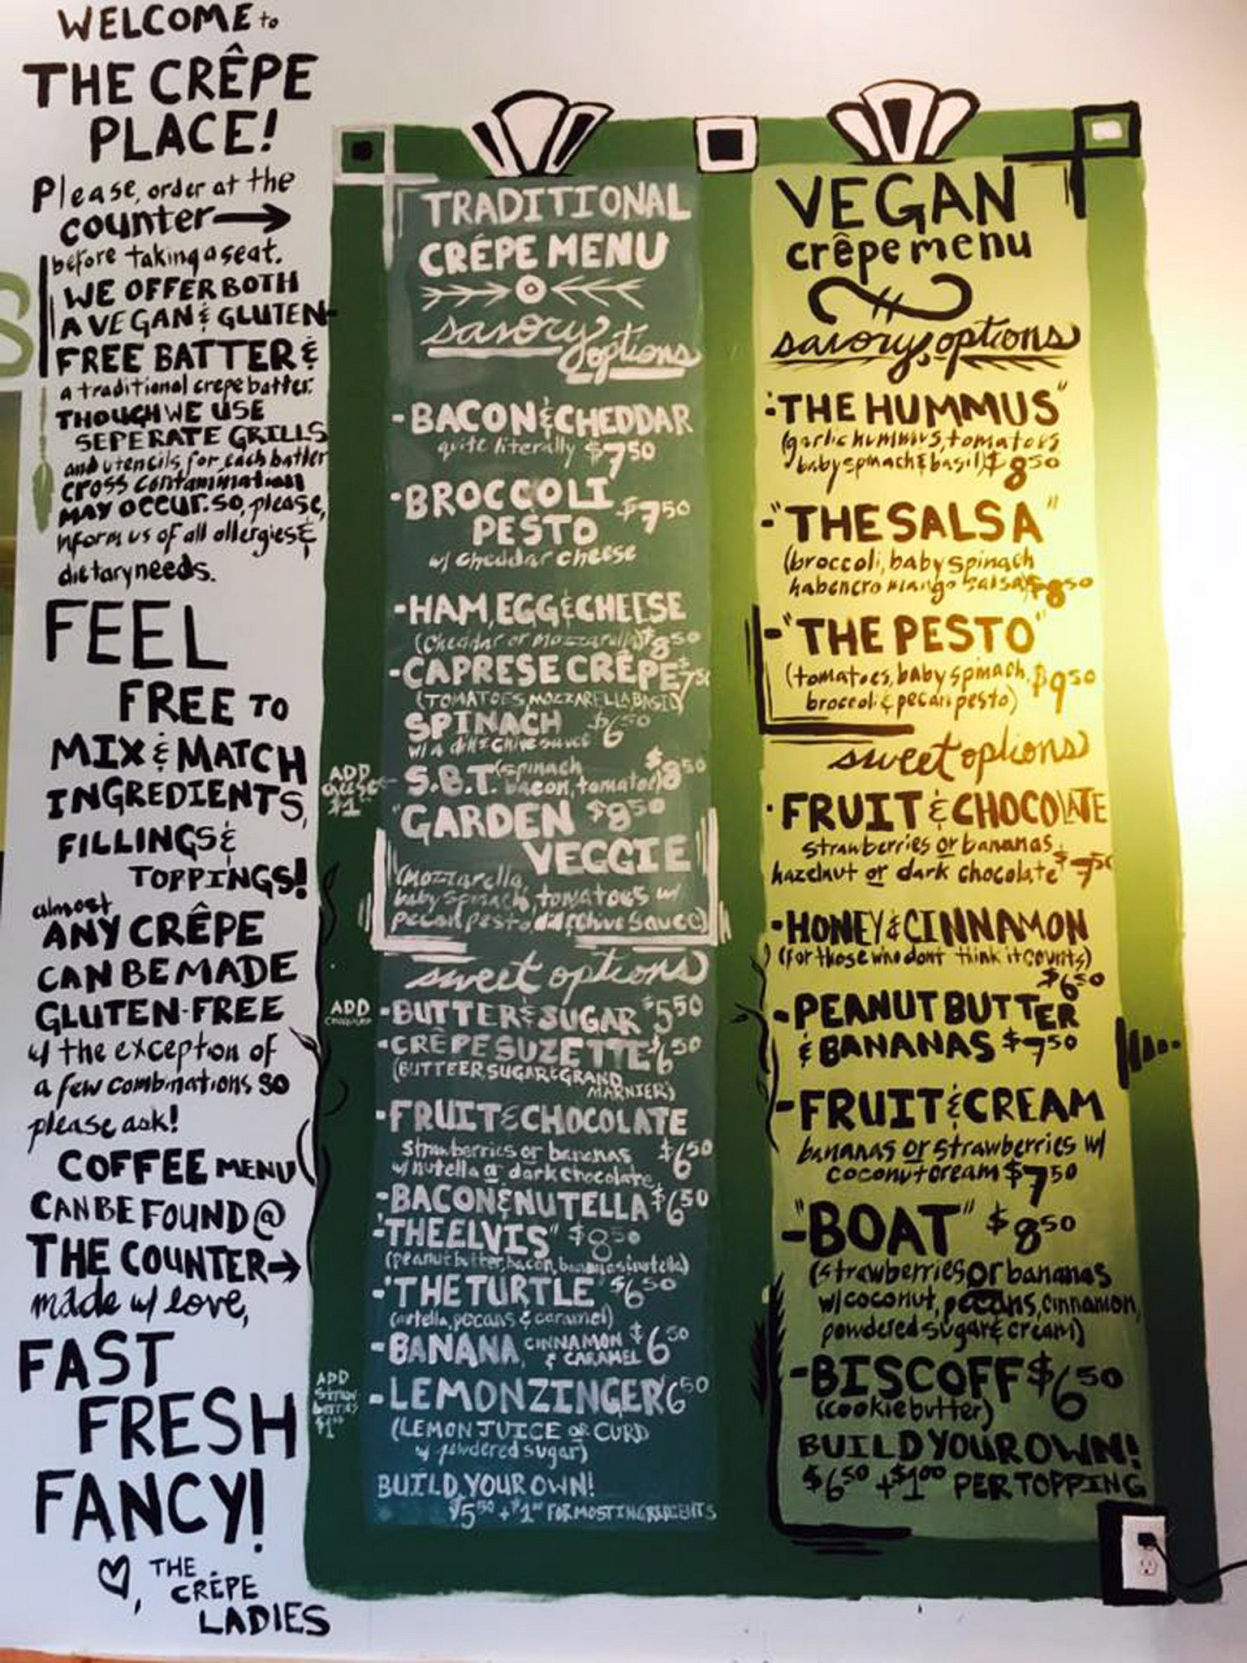 WELCOME to
THE CRÊPE
PLACE!
Please, order at the
counter →
before taking a seat.
WE OFFER BOTH
A VEGAN & GLUTEN-
FREE BATTER &
a traditional crepe batter.
THOUGH WE USE
SEPERATE GRILLS
and utencils, for each batter
CROSS contamination
MAY OCCUR. SO, please,
inform us of all allergies &
dietary needs.
FEEL
FREE TO
MIX & MATCH
INGREDIENTS,
FILLINGS &
TOPPINGS!
almost
ANY CRÊPE
CAN BE MADE
GLUTEN-FREE
w/ the exception of
a few combinations so
please ask!
COFFEE MENU
CAN BE FOUND @
THE COUNTER →
made w/ love,
FAST
FRESH
FANCY!
♡, THE
CRÊPE
LADIES
TRADITIONAL
CRÊPE MENU
savory options
- BACON & CHEDDAR
quite literally $7.50
- BROCCOLI
PESTO $7.50
w/ cheddar cheese
- HAM, EGG & CHEESE
(Cheddar or mozzarella) $8.50
- CAPRESE CRÊPE $7.50
(TOMATOES, MOZZARELLA BASIL)
SPINACH $6.50
w/ a dill & chive sauce
ADD cheese $1.00
- S.B.T. (spinach bacon, tomato) $8.50
"GARDEN $8.50
VEGGIE
(mozzarella,
baby spinach, tomatoes w/
pecan pesto, dill & chive sauce)
sweet options
ADD
- BUTTER & SUGAR $5.50
- CRÊPE SUZETTE $6.50
(BUTTEER, SUGAR & GRAND
MARNIER)
- FRUIT & CHOCOLATE
strawberries or bananas $6.50
w/ nutella or dark chocolate
- BACON & NUTELLA $6.50
- "THE ELVIS" $8.50
(peanut butter, bacon, bananas & nutella)
- "THE TURTLE" $6.50
(nutella, pecans & caramel)
- BANANA, CINNAMON & CARAMEL $6.50
ADD strawberries $1.00
- LEMON ZINGER 6.50
(LEMON JUICE OR CURD
w/ powdered sugar)
BUILD YOUR OWN!
$5.50 + $1.00 FOR MOST INGREDIENTS
VEGAN
crêpe menu
savory options
- "THE HUMMUS"
(garlic hummus, tomatoes
baby spinach & basil) $8.50
- "THE SALSA"
(broccoli, baby spinach
habenero mango salsa) $8.50
- "THE PESTO"
(tomatoes, baby spinach, $9.50
broccoli & pecan pesto)
sweet options
- FRUIT & CHOCOLATE
strawberries or bananas
hazelnut or dark chocolate $7.50
- HONEY & CINNAMON
(for those who don't think it counts)
$6.50
- PEANUT BUTTER
& BANANAS $7.50
- FRUIT & CREAM
bananas or strawberries w/
coconut cream $7.50
- "BOAT" $8.50
(strawberries or bananas
w/ coconut, pecans, cinnamon,
powdered sugar & cream)
- BISCOFF $6.50
(cookie butter)
BUILD YOUR OWN!
$6.50 + $1.00 PER TOPPING